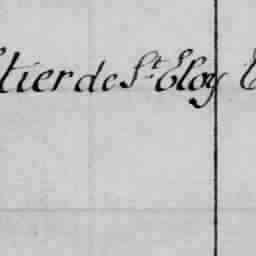 tier de St Eloy